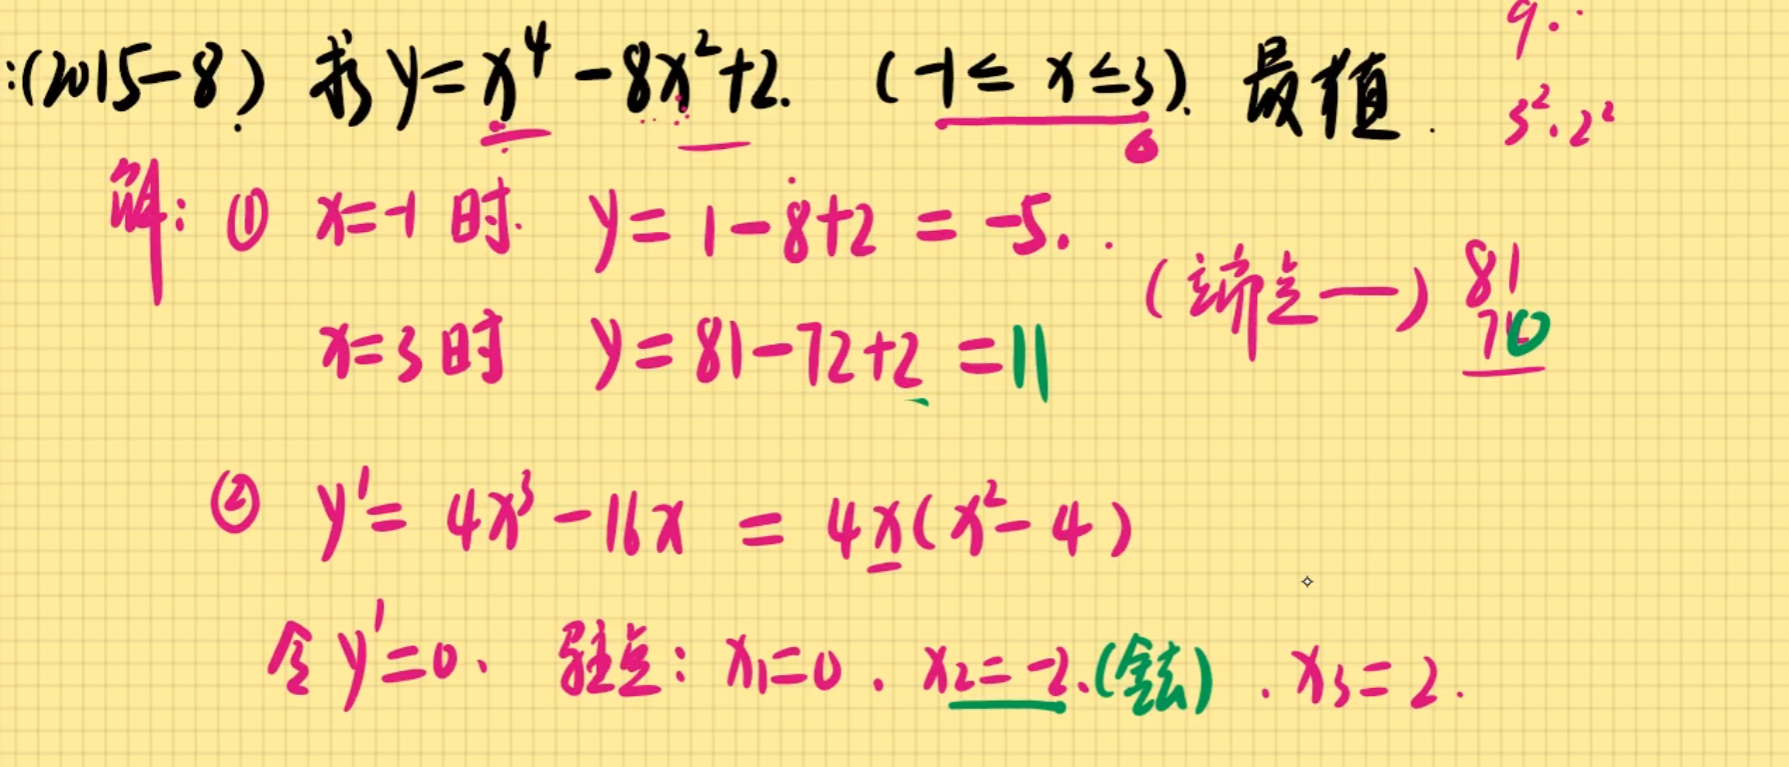 :(2015-8) 求 y=x⁴-8x²+2. (-1≤x≤3). 最值.
9.
3².2²
解: ① x=-1 时. y=1-8+2=-5.
(端点一)
81
70
x=3 时 y=81-72+2=11
② y'=4x³-16x=4x(x²-4)
令 y'=0、 驻点: x₁=0. x₂=-2.(舍去). x₃=2.